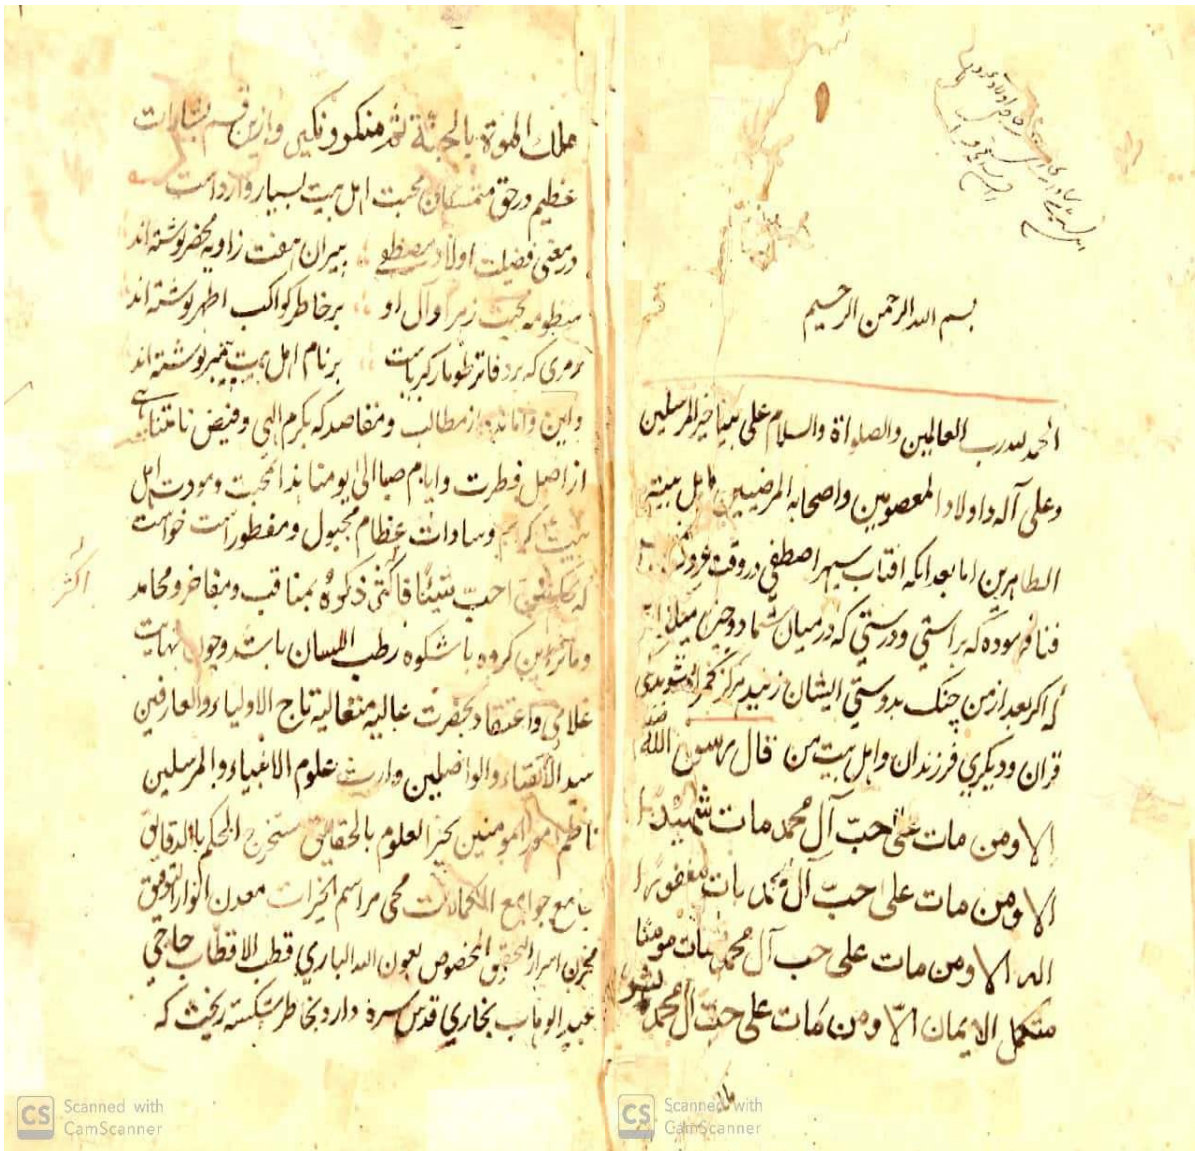 بسم الله الرحمن الرحیم
الحمد لله رب العالمین والصلواة والسلام علی نبینا خیر المرسلین
وعلی آله واولاد المعصومین واصحابه المرضیین واهل بیته
الطاهرین اما بعد انکه افتاب سپهر اصطفی در وقت عروج
فنا فرموده که براستی ودرستی که درمیان شما دو چیز میگذارم
که اکر بعد از من چنک بدوستی ایشان زنید هرکز کمراه نشوید یکی
قران ودیکری فرزندان واهل بیت من قال رسول الله
الا ومن مات علی حبّ آل محمد مات شهیدًا
الا ومن مات علی حبّ ال محمد مات مغفورًا
له الا ومن مات علی حب آل محمد مات مومنًا
متکمل الایمان الا ومن مات علی حبّ ال محمد بشره
ملك الموت بالجنة ثم منکر ونکیر وازین قسم بشارات
عظیم در حق متمسکان محبت اهل بیت بسیار وارد است
در معنی فضیلت اولاد مصطفی پیران هفت زاویه محضر نوشته اند
منظومه محبت زهرا وآل او بر خاطر کواکب اطهر نوشته اند
که بر دفاتر طومار کبریاست بر نام اهل بیت پیمبر نوشته اند
واین از مطالب ومقاصد که بکرم الهی وفیض نامتناهی
از اصل فطرت وایام صبا الی یومنا هذا محبت ومودت اهل
بیت کریم وسادات عظام مجبول ومفطور است خواست
که بحکم من احبّ شیئًا فاکثر ذکره بمناقب ومفاخر ومحامد
وماثر این کروه باشکوه رطب اللسان باشد وچون نهایت
غلامی واعتقاد بحضرت عالیه متعالیه تاج الاولیاء والعارفین
سید الاتقیاء والواصلین وارث علوم الانبیاء والمرسلین
ناظم امور المومنین بحر العلوم بالحقایق مستخرج الحکم بالدقایق
جامع جوامع الکمالات محی مراسم الخیرات معدن انوار التوفیق
مخزن اسرار التحقیق المخصوص بعون الله الباری قطب الاقطاب حاجی
عبد الوهاب بخاری قدس سره دارد بخاطر شکسته ریخت که
اکثر
CS Scanned with
CamScanner
CS Scanned with
CamScanner